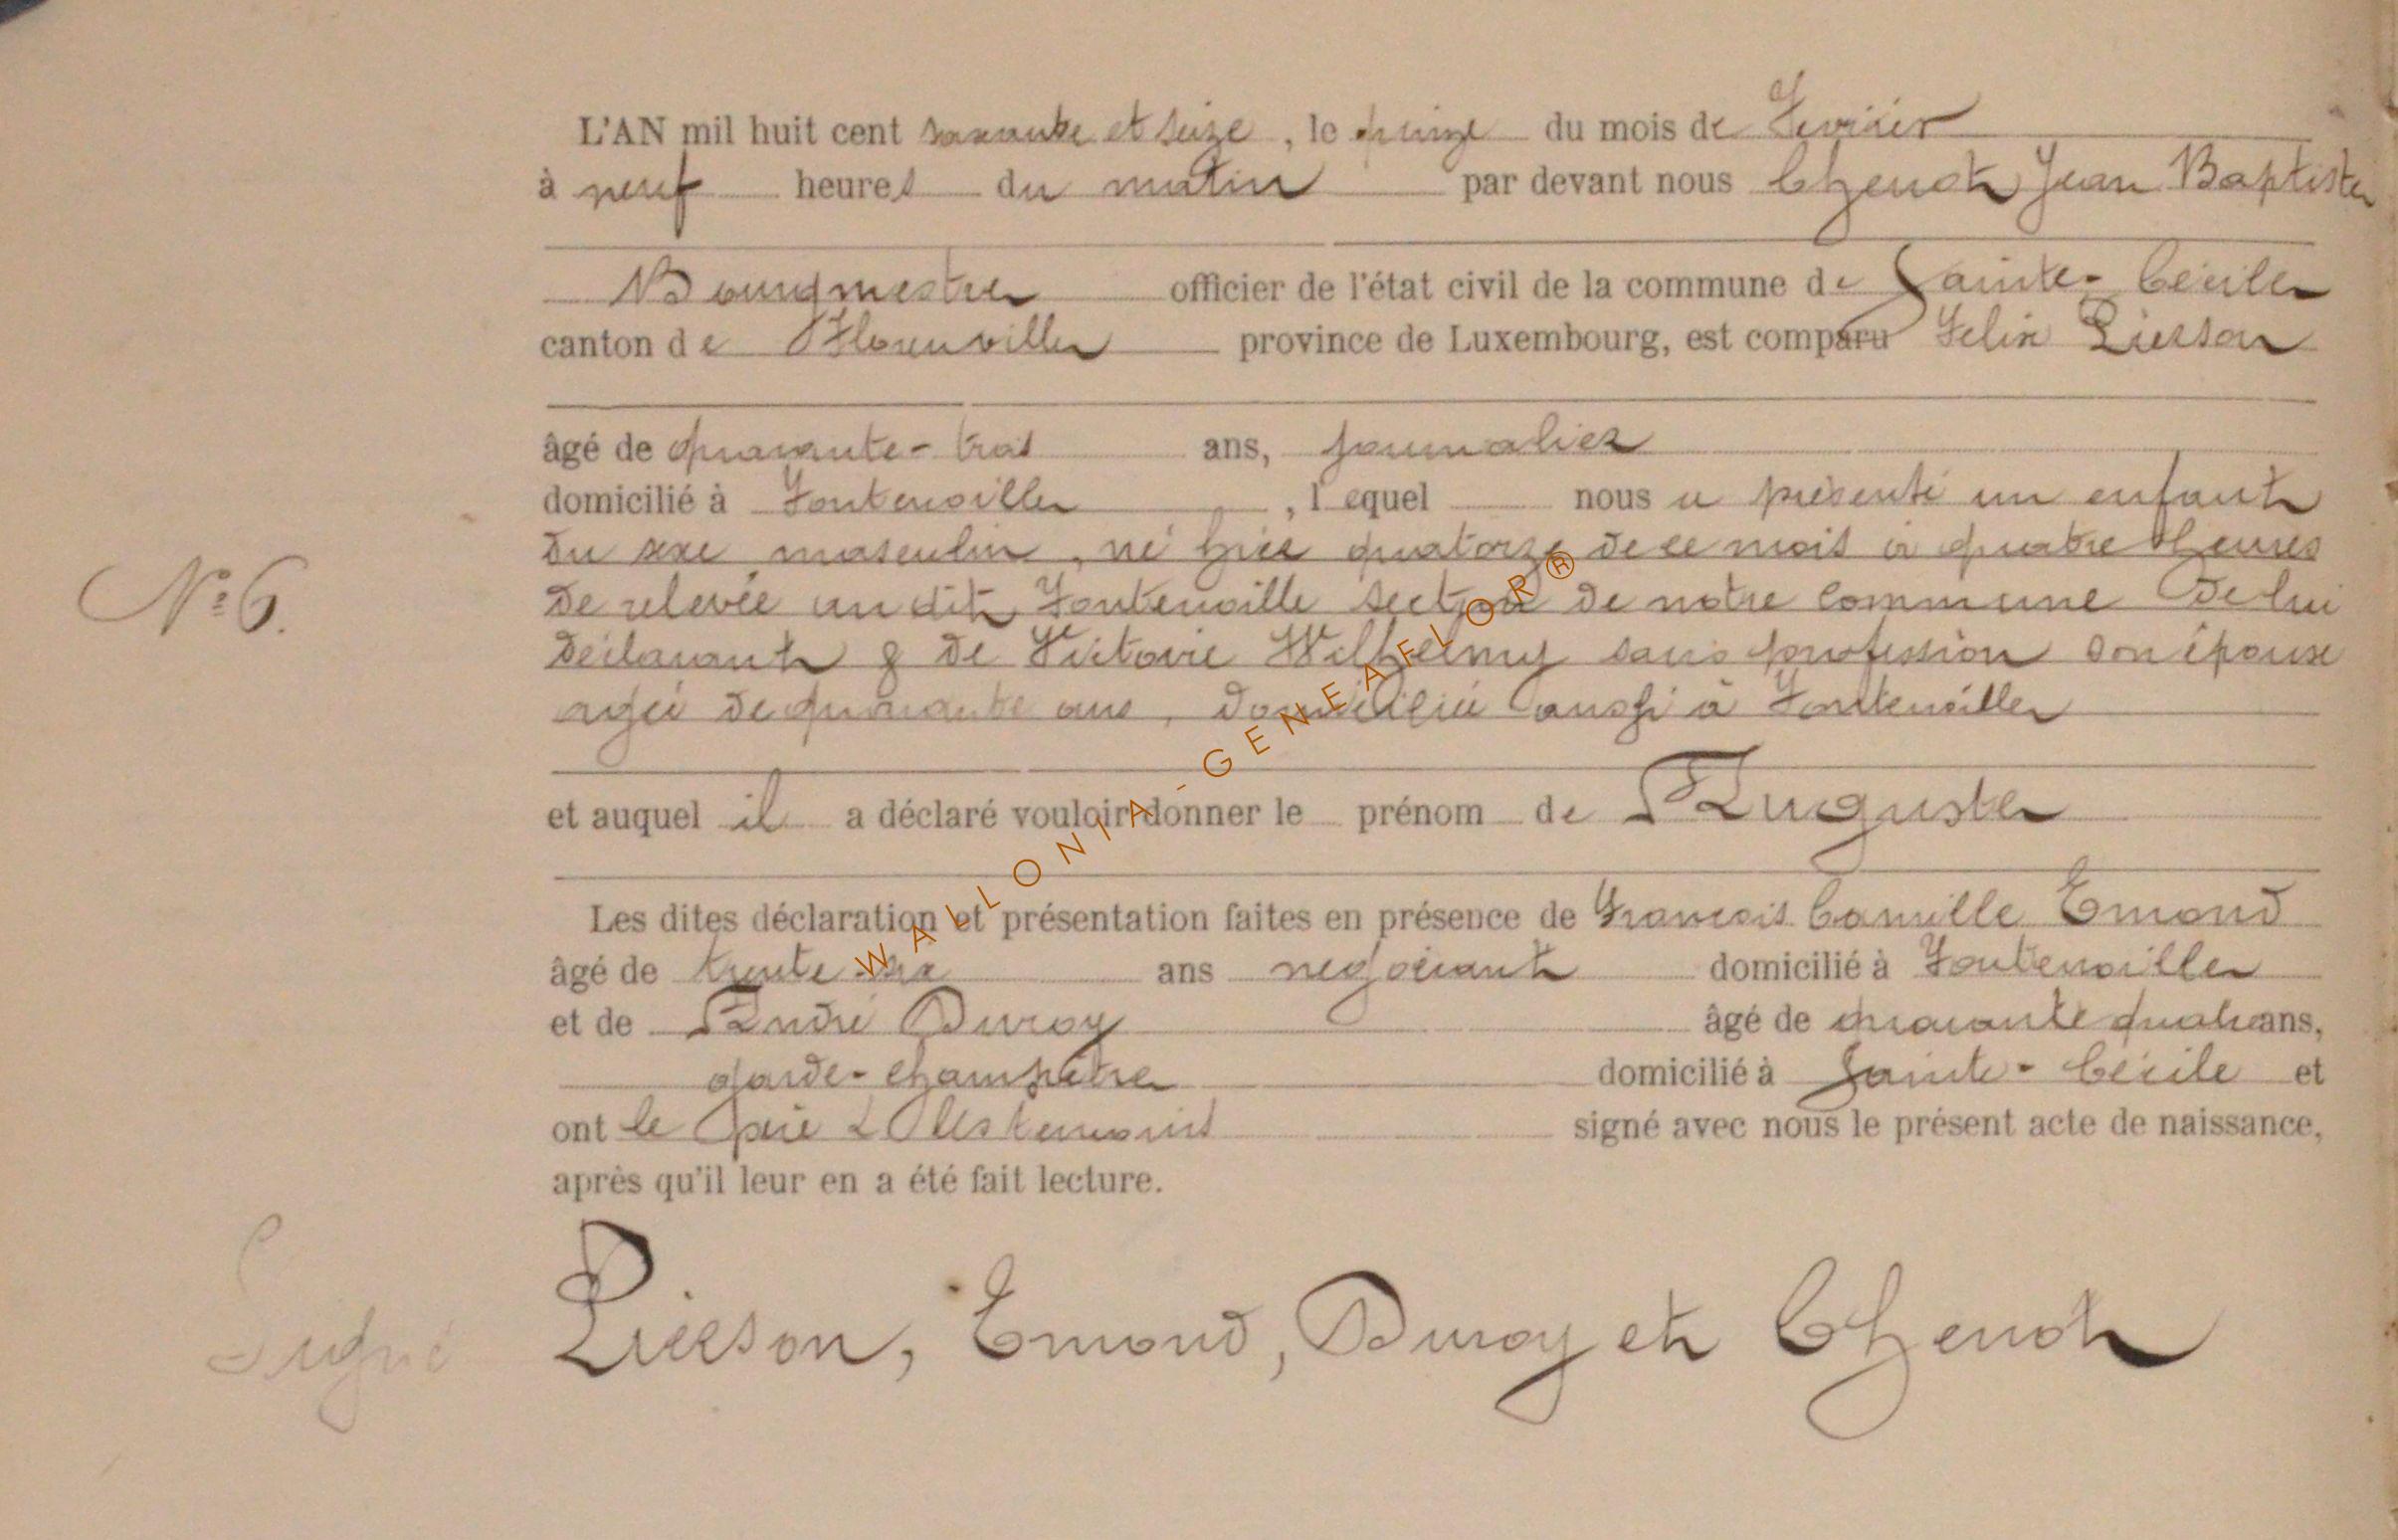 L'AN mil huit cent soixante et seize, le quinze du mois de Fevrier
à neuf heures du matin par devant nous Chenot Jean Baptiste
Bourgmestre officier de l'état civil de la commune de Sainte-Cécile
canton de Florenville province de Luxembourg, est comparu Felix Pierson
âgé de quarante-trois ans, journalier
domicilié à Fontenoille, lequel nous a présenté un enfant
du sexe masculin, né hier quatorze de ce mois à quatre heures
de relevée au dit Fontenoille section de notre commune de lui
déclarant & de Victoire Wilhelmy sans profession son épouse
agée de quarante ans, domiciliée aussi à Fontenoille
et auquel il a déclaré vouloir donner le prénom de Auguste
Les dites déclaration et présentation faites en présence de François Camille Emond
âgé de trente-six ans négociant domicilié à Fontenoille
et de André Duroy âgé de quarante quatre ans,
garde-champêtre domicilié à Sainte-Cécile et
ont le père & les temoins signé avec nous le présent acte de naissance,
après qu'il leur en a été fait lecture.
N° 6.
Signé Pierson, Emond, Duroy et Chenot
WALLONIA-GENEAFLOR®